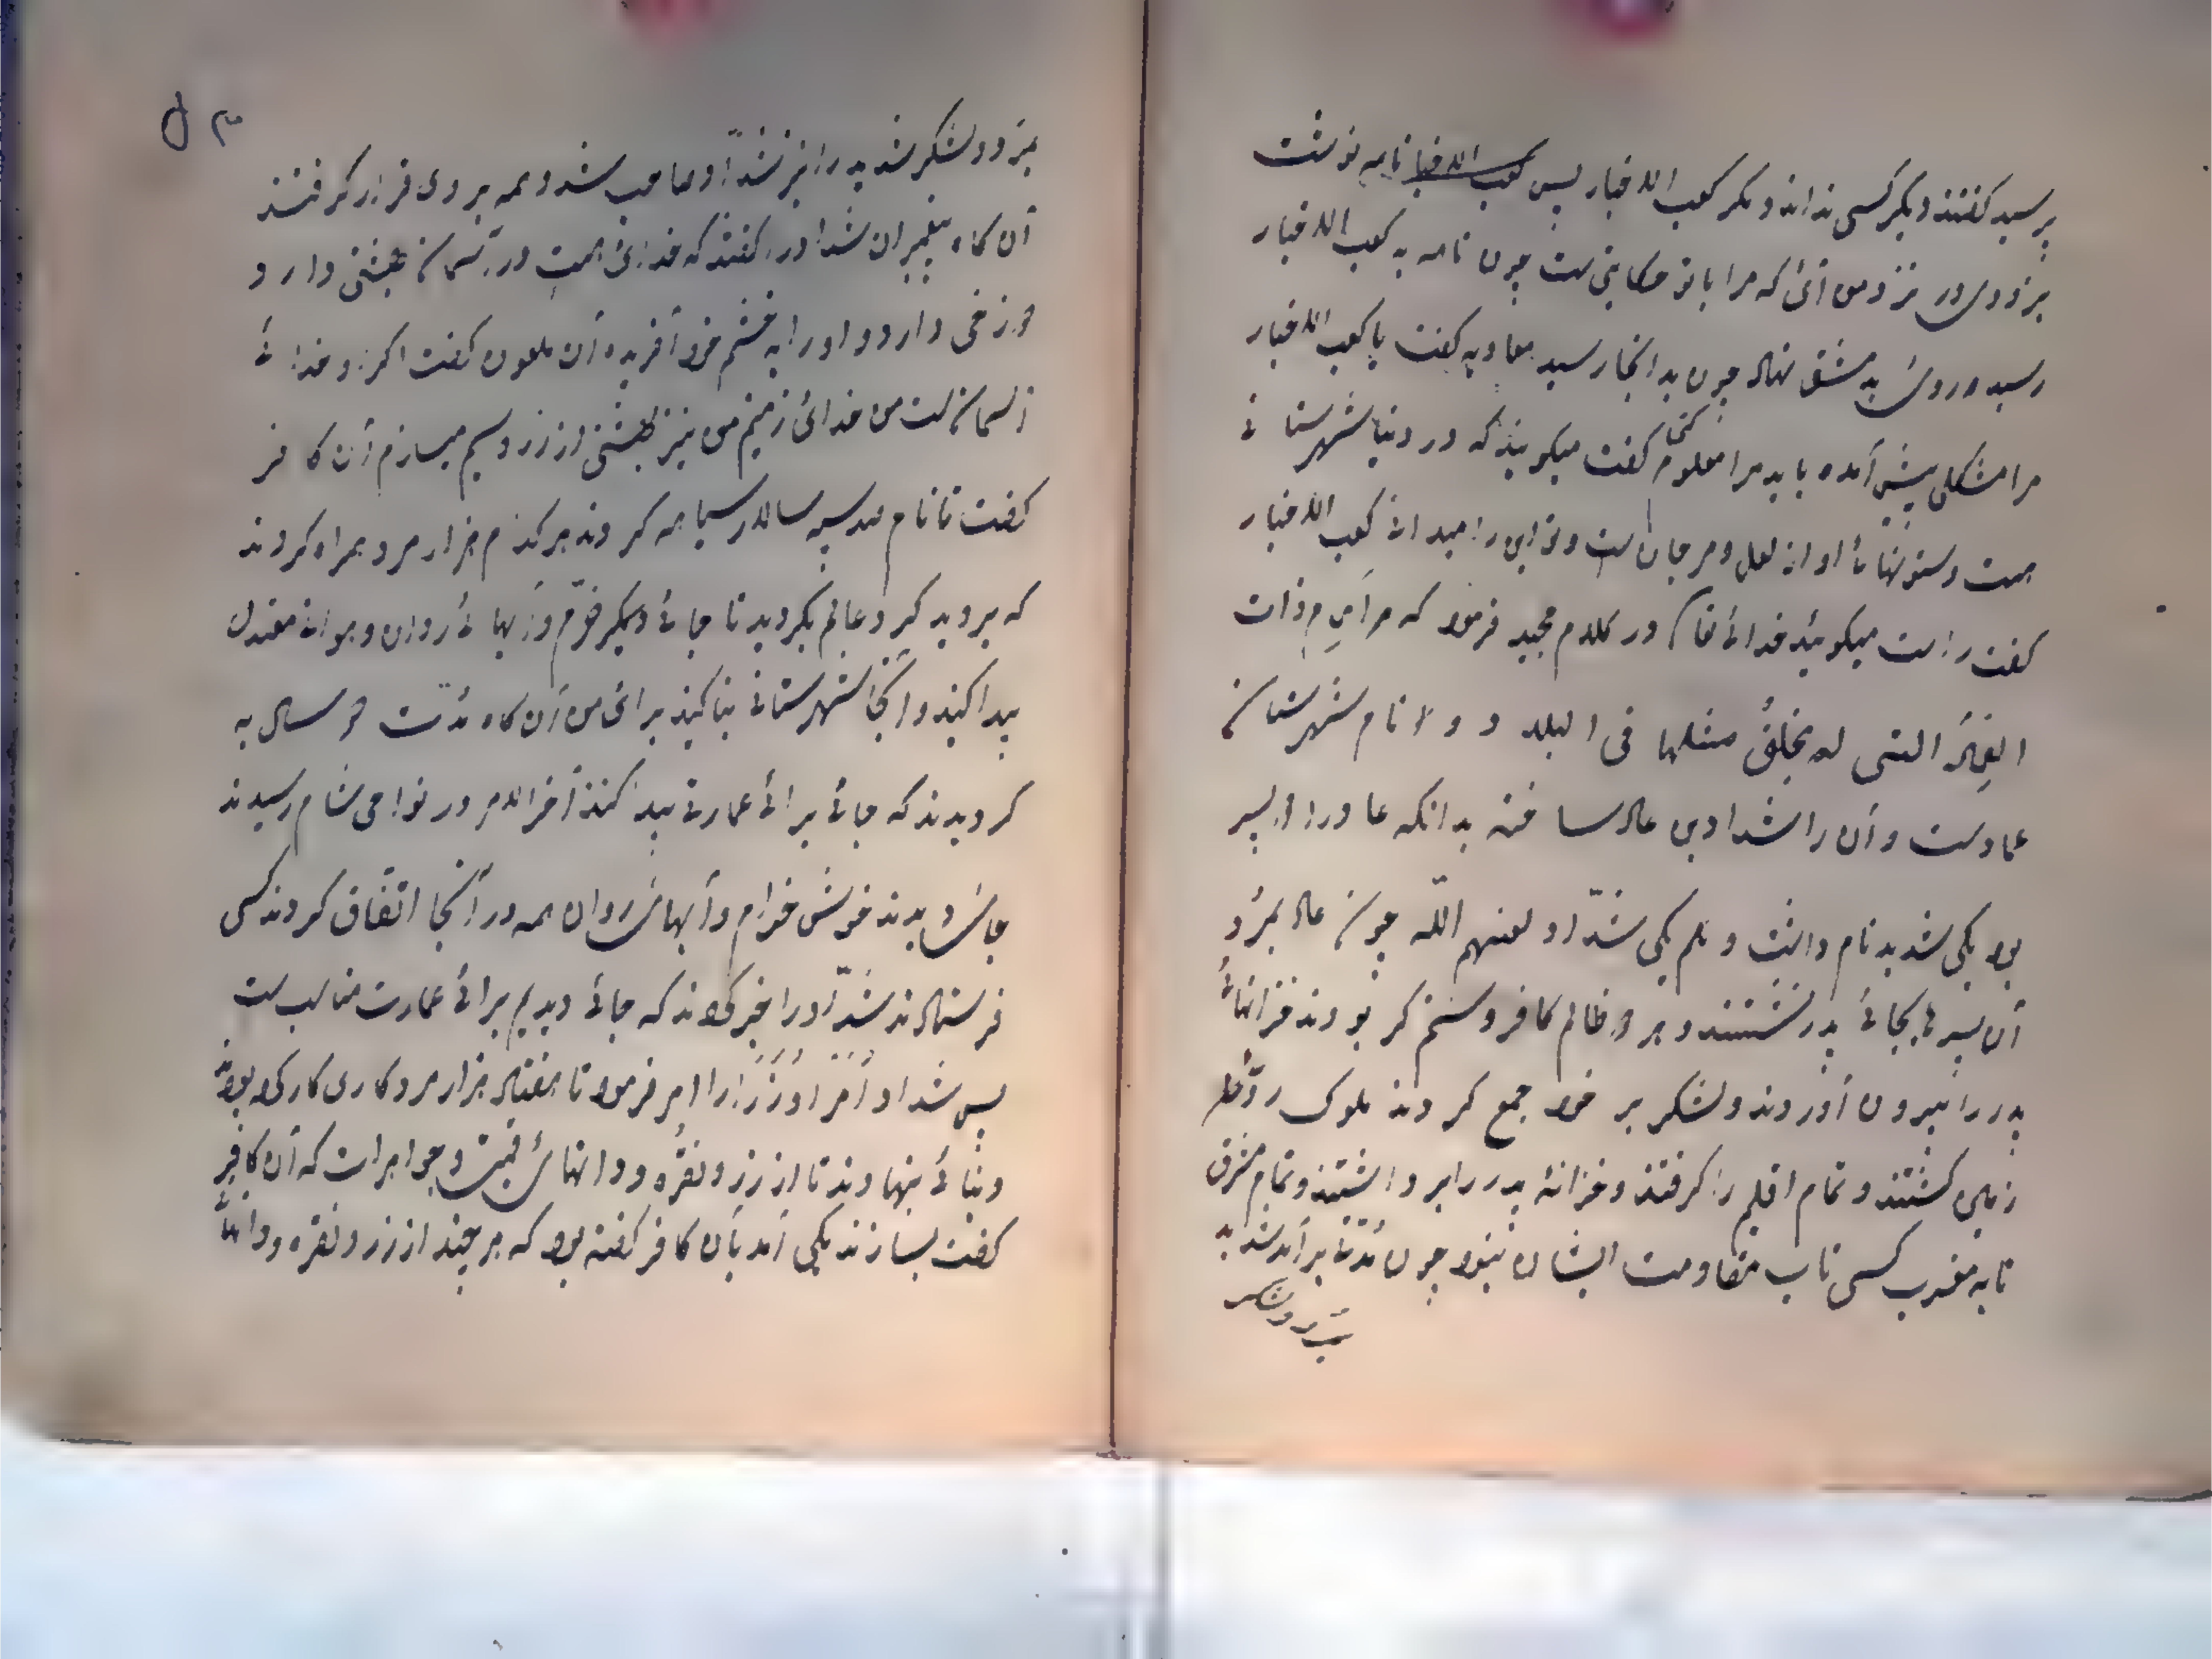 پرسید گفتند دیگر کسی نداند و مگر کعب الاخبار پس کعب الاخبار نامه نوشت
بزودی در نزد من آئی که مرا با تو حکایتی ست چون نامه به کعب الاخبار
رسید روی به دمشق نهاد چون بدانجا رسید معاویه گفت یا کعب الاخبار
مرا مشکلی پیش آمده باید مرا معلوم کنی گفت میگویند که در دنیا شهرستانی
هست و ستونهائ او از لعل و مرجان ست و تو این را میدانی کعب الاخبار
گفت راست میگویند خدائ تعالی در کلام مجید فرمود که مر ارم ذات
العماد التی لم یخلق مثلها فی البلاد و نام شهرستان
عاد ست و آن را شداد بن عاد ساخته بدانکه عاد را دو پسر
بود یکی شدید نام داشت و نام یکی شدّاد لعنهم اللّه چون عاد بمرد
آن پسرها بجائ پدر نشستند و هر دو ظالم کافر و ستم گر بودند خزانهائ
پدر را بیرون آوردند و لشکر بر خود جمع کردند ملوک روئ
زمین کشتند و تمام اقلیم را گرفتند و خزانۀ پدر را برداشتند و تمام مشرق
تا به مغرب کسی تاب مقاومت ایشان نبود چون مدّتی برآمد شدید
بمرد و لشکر
۵۳
بمرد و لشکر شدید را نیز شدّاد صاحب شد و همه بر وی قرار گرفتند
آن گاه پیغمبران شداد را گفتند که خدائ هست در آسمان بهشتی دارد
دوزخی دارد و او را به خشم خود آفریده آن ملعون گفت اگر او خدائ
آسمان ست من خدائ زمینم من نیز بهشتی از زر و سیم میسازم آن کافر
گفت تا نام صد سپه سالار سیاهه کردند هر کدام هزار مرد همراه کردند
که بروید گرد عالم بگردید تا جائ دیگر خرّم و آبهائ روان و هوائ معتدل
پیدا کنید و آنجا شهرستانی بنا کنید برائ من آن گاه مدّت دو سال به
گردیدند که جائ برائ عمارت پیدا کنند آخر الامر در نواحی شام رسیدند
جائ دیدند خوش خرّم و آبهائ روان همه در آنجا اتفّاق کردند کسی
فرستادند شدّاد را خبر کردند که جائ دیدیم برائ عمارت مناسب ست
پس شداد امرا و وزرا را امر فرمود تا هفتاد هزار مرد کاری کار کرد بودند
و بنائ بنهادند تا از زر و نقره و دانهائ قیمت و جواهرات که آن کافر
گفت بسازند یکی آمد بآن کافر گفته بود که هر چند از زر و نقره و دانهائ